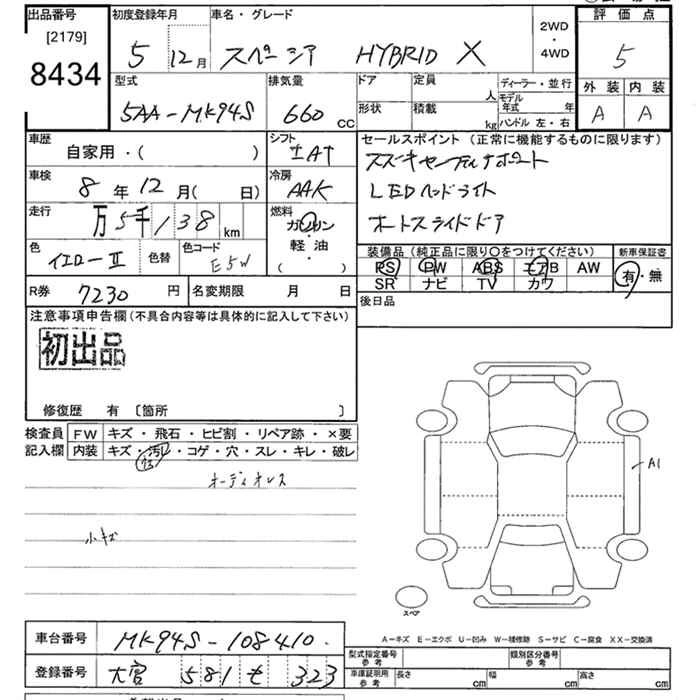 出品番号
[2179]
8434
初度登録年月
5 12月
車名・グレード
スペーシア HYBRID X
2WD
・
4WD
評価点
5
外装 内装
A A
型式
5AA-MK94S
排気量
660 cc
ドア
形状
定員 人
積載 kg
ディーラー・並行
モデル年式 年
ハンドル 左・右
車歴
自家用・( )
シフト
IAT
車検
8年12月( 日)
冷房
AAC
走行
万5千138km
燃料
ガソリン
・
軽油
( )
色
イエローⅡ
色替
色コード
E5W
R券 7230円
名変期限 月 日
セールスポイント (正常に機能するものに限ります)
スズキセーフティサポート
LEDヘッドライト
オートスライドドア
装備品(純正品に限り○をつけてください)
PS PW ABS エアB AW
SR ナビ TV カワ
新車保証書
有・無
後日品
注意事項申告欄(不具合内容等は具体的に記入して下さい)
初出品
修復歴 有 〔箇所 〕
検査員記入欄
FW キズ・飛石・ヒビ割・リペア跡・×要
内装 キズ・汚レ・コゲ・穴・スレ・キレ・破レ
オーディオレス
小キズ
A1
スペア
A-キズ E-エクボ U-凹み W-補修跡 S-サビ C-腐食 XX-交換済
車台番号
MK94S-108410
登録番号
大宮 581 も 323
型式指定番号 参考
類別区分番号 参考
車庫証明用 参考
長さ cm 幅 cm 高さ cm